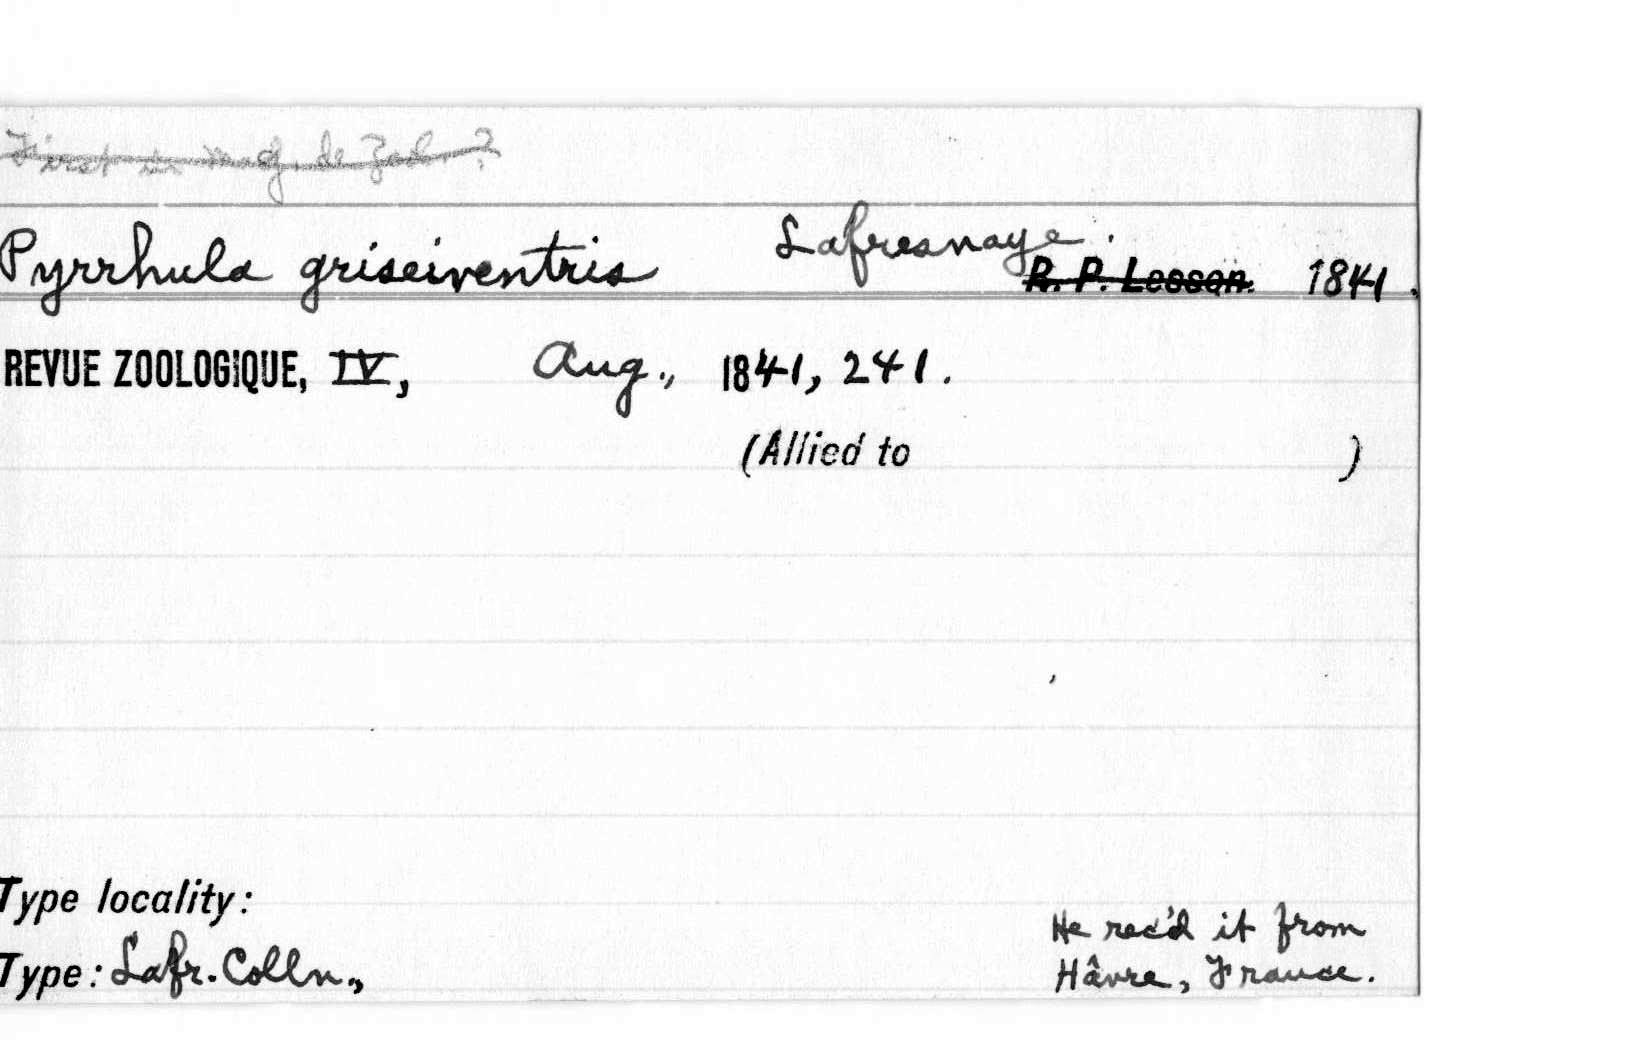 First in Mag. de Zool. ?
Pyrrhula griseiventris Lafresnaye. R. P. Lesson. 1841.
REVUE ZOOLOGIQUE, IV, Aug., 1841, 241.
(Allied to )
Type locality:
He rec'd it from
Type: Lafr. Colln., Hâvre, France.